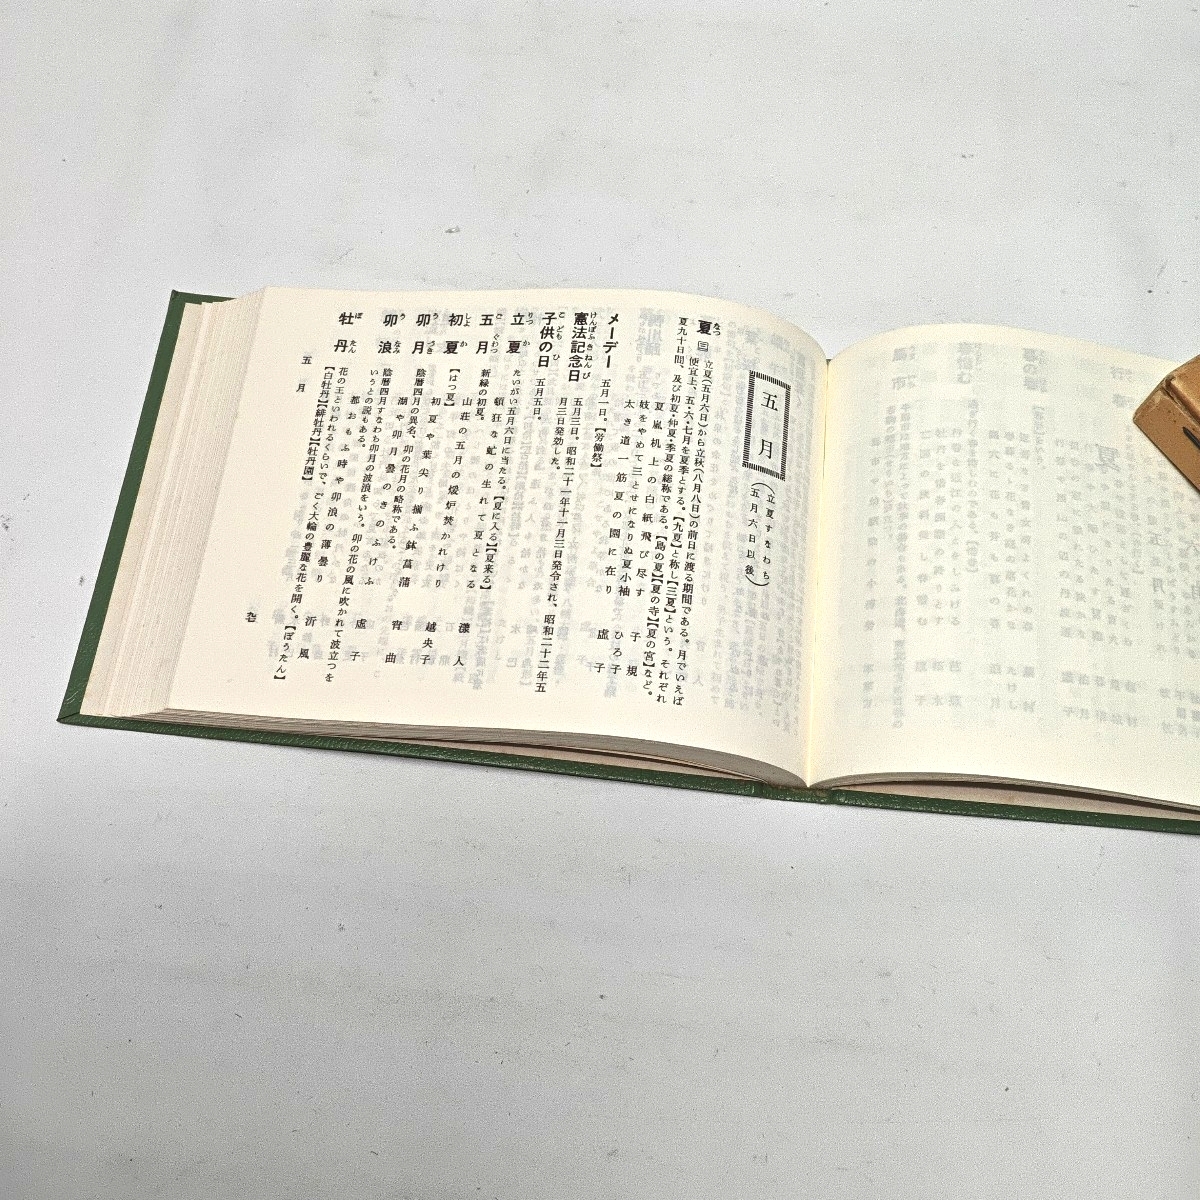 五月
(立夏すなわち
五月六日以後)
夏 立夏(五月六日)から立秋(八月八日)の前日に渡る期間である。月でいえば
便宜上、五・六・七月を夏季とする。【九夏】と称し【三夏】という。それぞれ
夏九十日間、及び初夏・仲夏・季夏の総称である。【島の夏】【夏の寺】【夏の宮】など。
夏嵐机上の白紙飛び尽す 子規
岐をやめて三とせになりぬ夏小袖 ひろ子
太き道一筋夏の園に在り 虚子
メーデー 五月一日。【労働祭】
憲法記念日 五月三日。昭和二十一年十一月三日発令され、昭和二十二年五
月三日発効した。
子供の日 五月五日。
立夏 たいがい五月六日に当たる。【夏に入る】【夏来る】
頓狂な虻の生れて夏となる 漾人
五月 新緑の初夏。
山荘の五月の煖炉焚かれけり 越央子
初夏 【はつ夏】
初夏や葉尖り揃ふ鉢菖蒲 宵曲
卯月 陰暦四月の異名、卯の花月の略称である。
湖や卯月曇のきのふけふ 虚子
卯浪 陰暦四月すなわち卯月の波浪をいう。卯の花の風に吹かれて波立つを
いうとの説もある。
都おもふ時や卯浪の薄曇り 沂風
牡丹 花の王といわれるくらいで、ごく大輪の豊麗な花を開く。【ぼうたん】
【白牡丹】【緋牡丹】【牡丹園】
五月